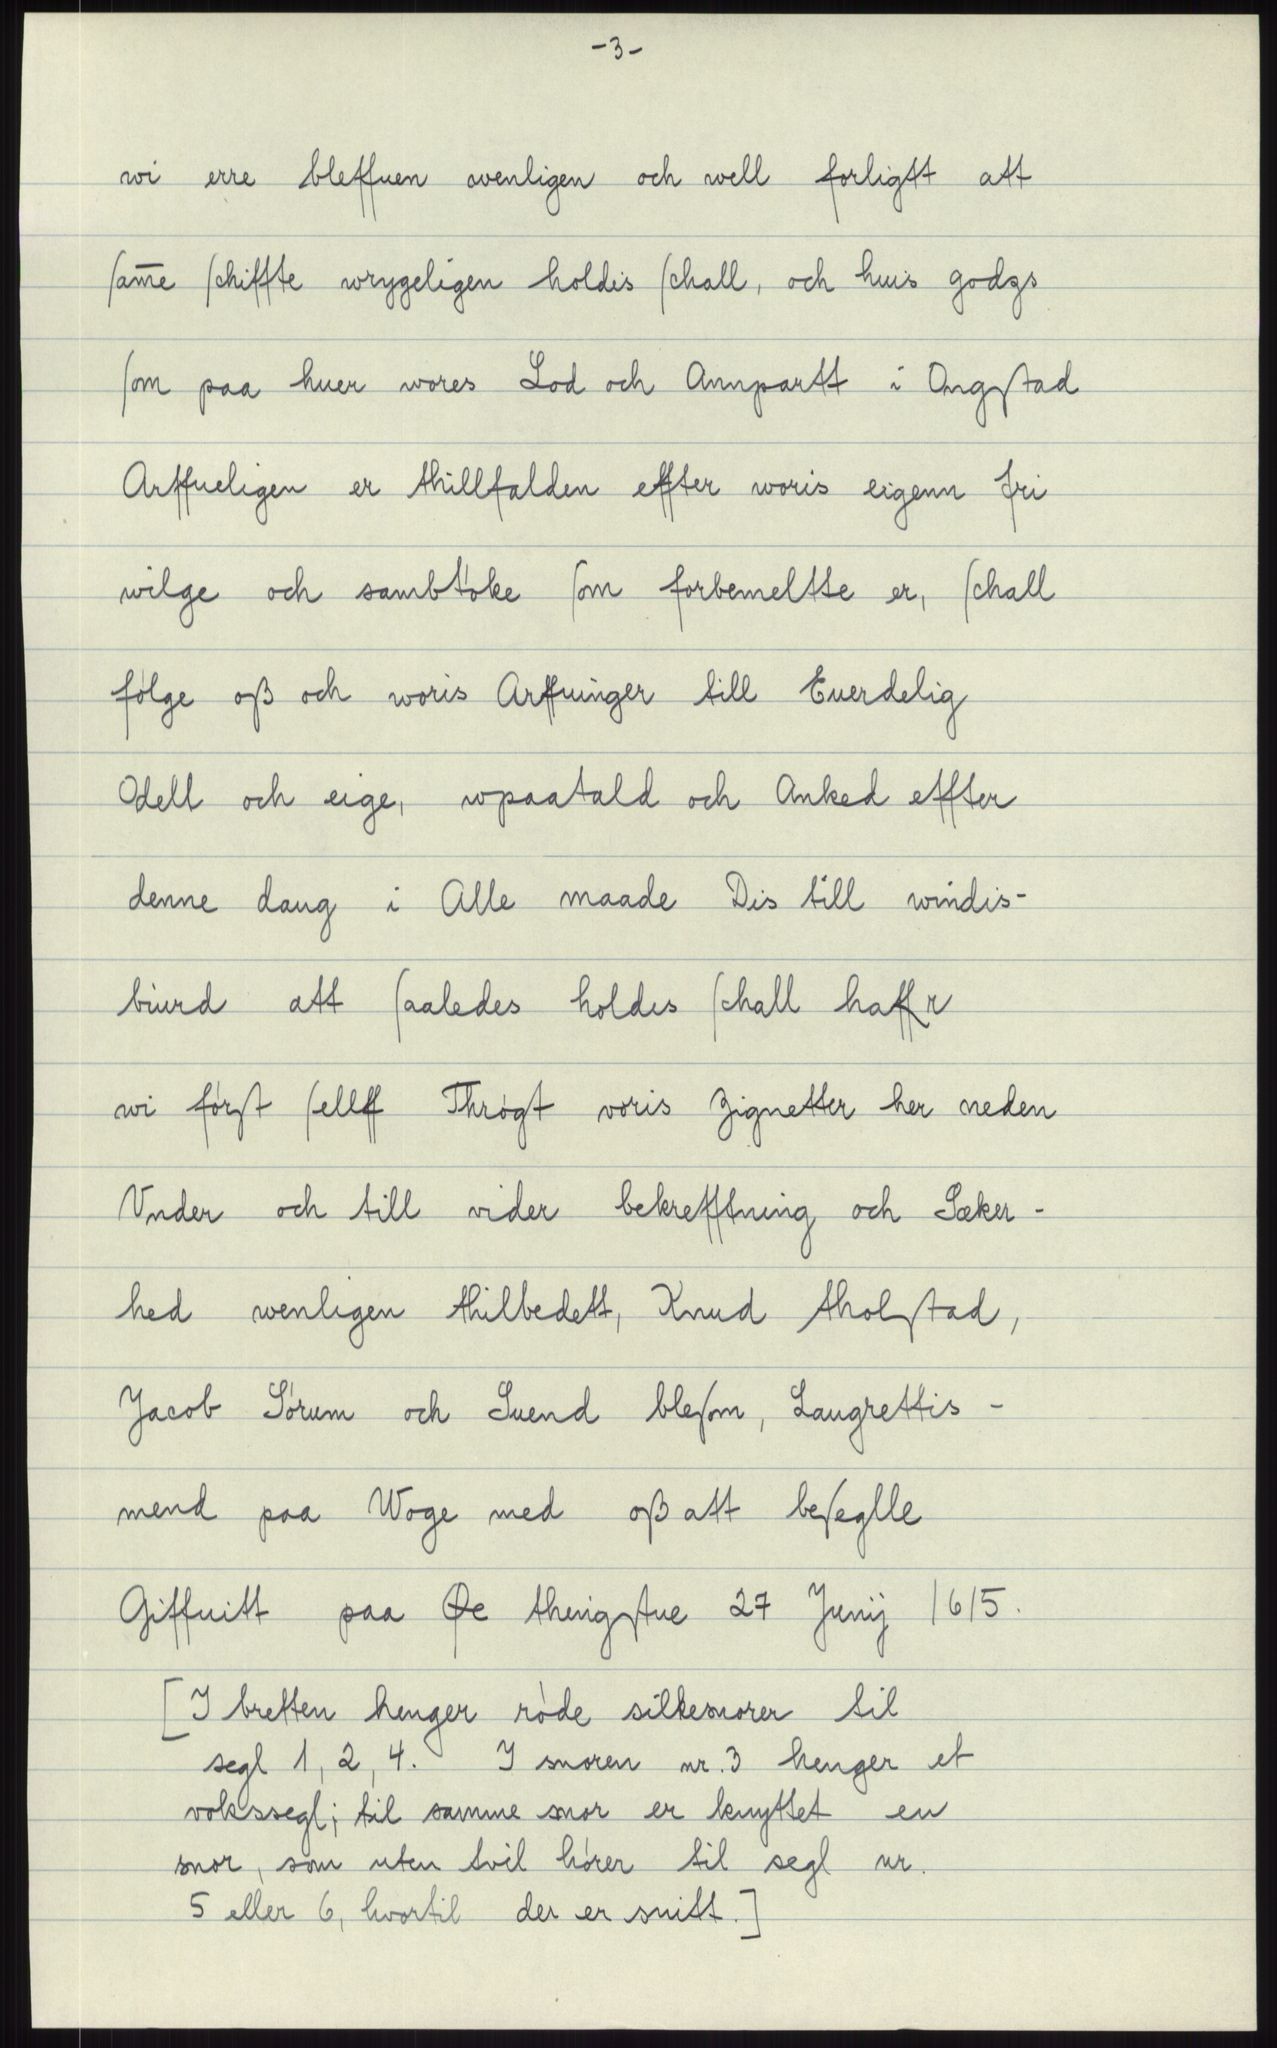 -3-
wi erre bleffuen wenligen och well forligtt att
ſam̅e ſchiffte wrygeligen holdis ſchall, och huis godzs
ſom paa huer wores Lod och Annpartt i Ongſtad
Arffueligen er thillfalden effter woris eigenn fri
wilge och sambtóke ſom forbemeltte er, ſchall
fólge oß och woris Arffuinger till Euerdelig
Odell och eige, wpaatald och Anked effter
denne daug i Alle maade Dis till windis-
biurd att ſaaledes holdes ſchall haffr
wi fórſt ſellff Thrógt voris Zignetter her neden
Vnder och till vider bekrefftning och Sæker-
hed wenligen thilbedett, Knud tholſtad,
Jacob Sórum och Suend bleſom, Laugrettis-
mend paa Woge med oß att beſeglle
Giffuitt paa Øe thingſtue 27 Junij 1615.
[I bretten henger róde silkesnorer til
segl 1, 2, 4. I snoren nr. 3 henger et
vokssegl; til samme snor er knyttet en
snor, som uten tvil hórer til segl nr.
5 eller 6, hvortil der er snitt.]